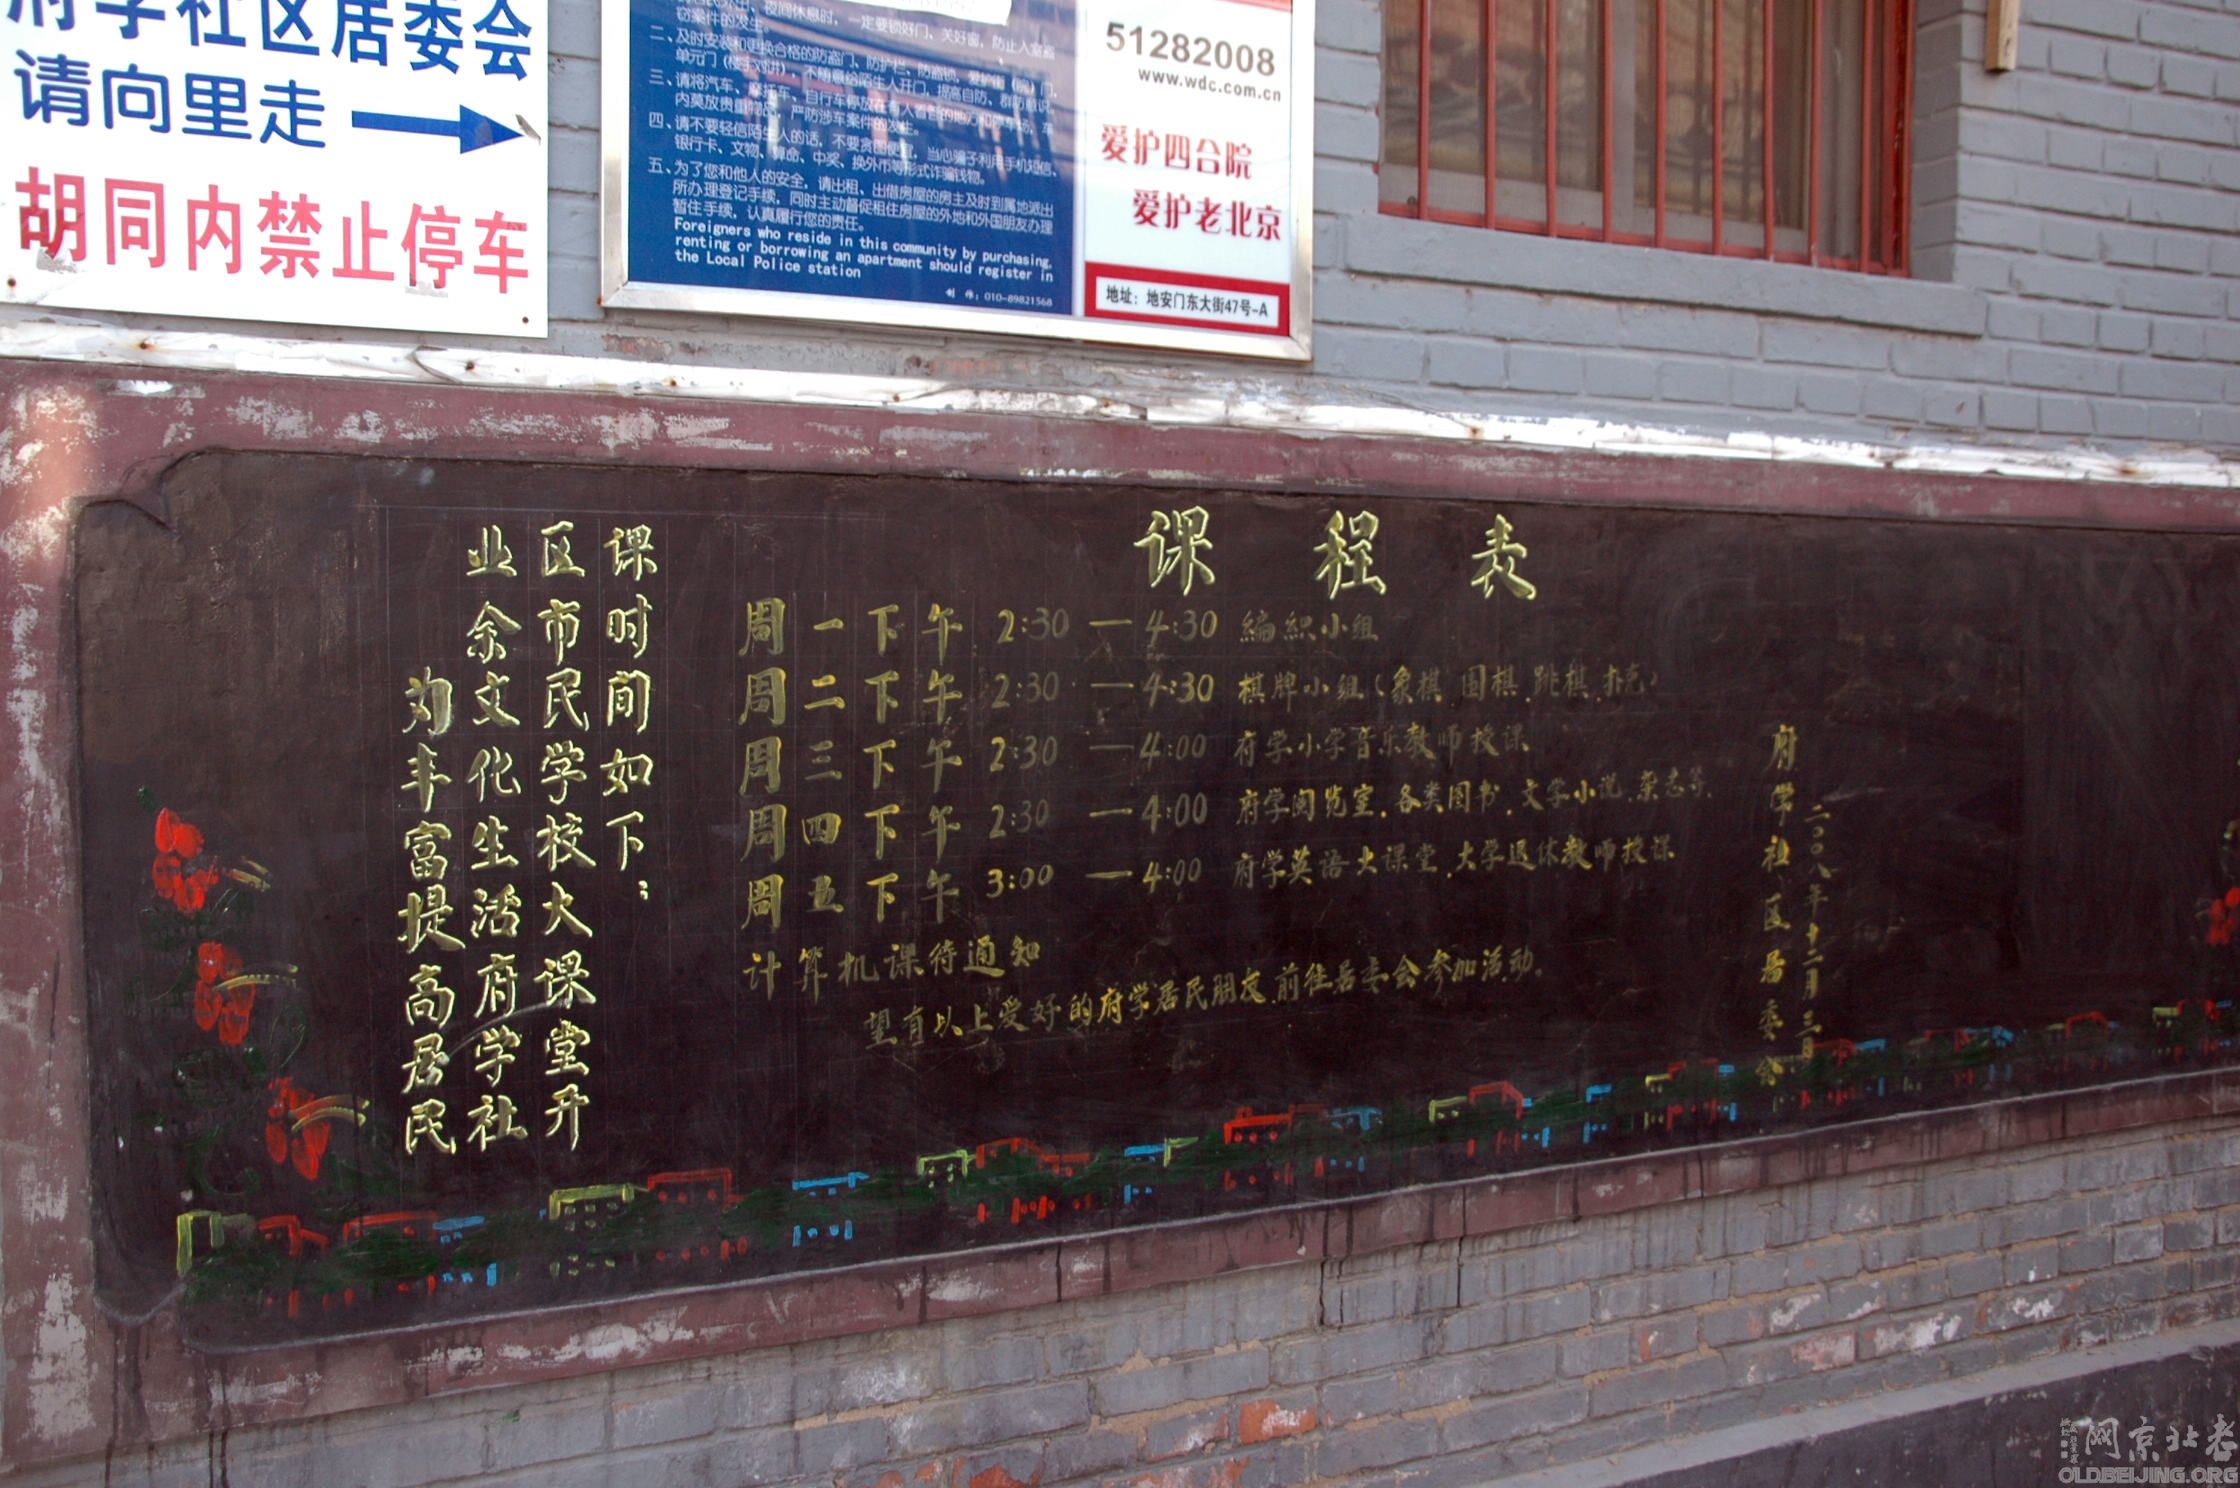 府学社区居委会
请向里走
胡同内禁止停车
窃案件的发生。
二、及时安装和更换合格的防盗门、防护栏、防盗锁，爱护街（院）门，
单元门（楼宇对讲），不随意给陌生人开门，提高自防、群防意识。
三、请将汽车、摩托车、自行车停放在有人看管的地方和停车场，车
内莫放贵重物品，严防涉车案件的发生。
四、请不要轻信陌生人的话，不要贪图便宜，当心骗子利用手机短信、
银行卡、文物、算命、中奖、换外币等形式诈骗钱物。
五、为了您和他人的安全，请出租、出借房屋的房主及时到属地派出
所办理登记手续，同时主动督促租住房屋的外地和外国朋友办理
暂住手续，认真履行您的责任。
Foreigners who reside in this community by purchasing,
renting or borrowing an apartment should register in
the Local Police station
制 作：010-89821568
51282008
www.wdc.com.cn
爱护四合院
爱护老北京
地址：地安门东大街47号-A
课程表
为丰富提高居民
业余文化生活府学社
区市民学校大课堂开
课时间如下：
周一下午 2:30 — 4:30 編織小组
周二下午 2:30 — 4:30 棋牌小组（象棋.围棋.跳棋.扑克）
周三下午 2:30 — 4:00 府学小学音乐教师授课
周四下午 2:30 — 4:00 府学阅览室.各类图书.文学小说.杂志等.
周五下午 3:00 — 4:00 府学英语大课堂.大学退休教师授课
计算机课待通知
望有以上爱好的府学居民朋友.前往居委会参加活动.
府学社区居委会
二〇〇八年十二月三日
老北京网
OLDBEIJING.ORG